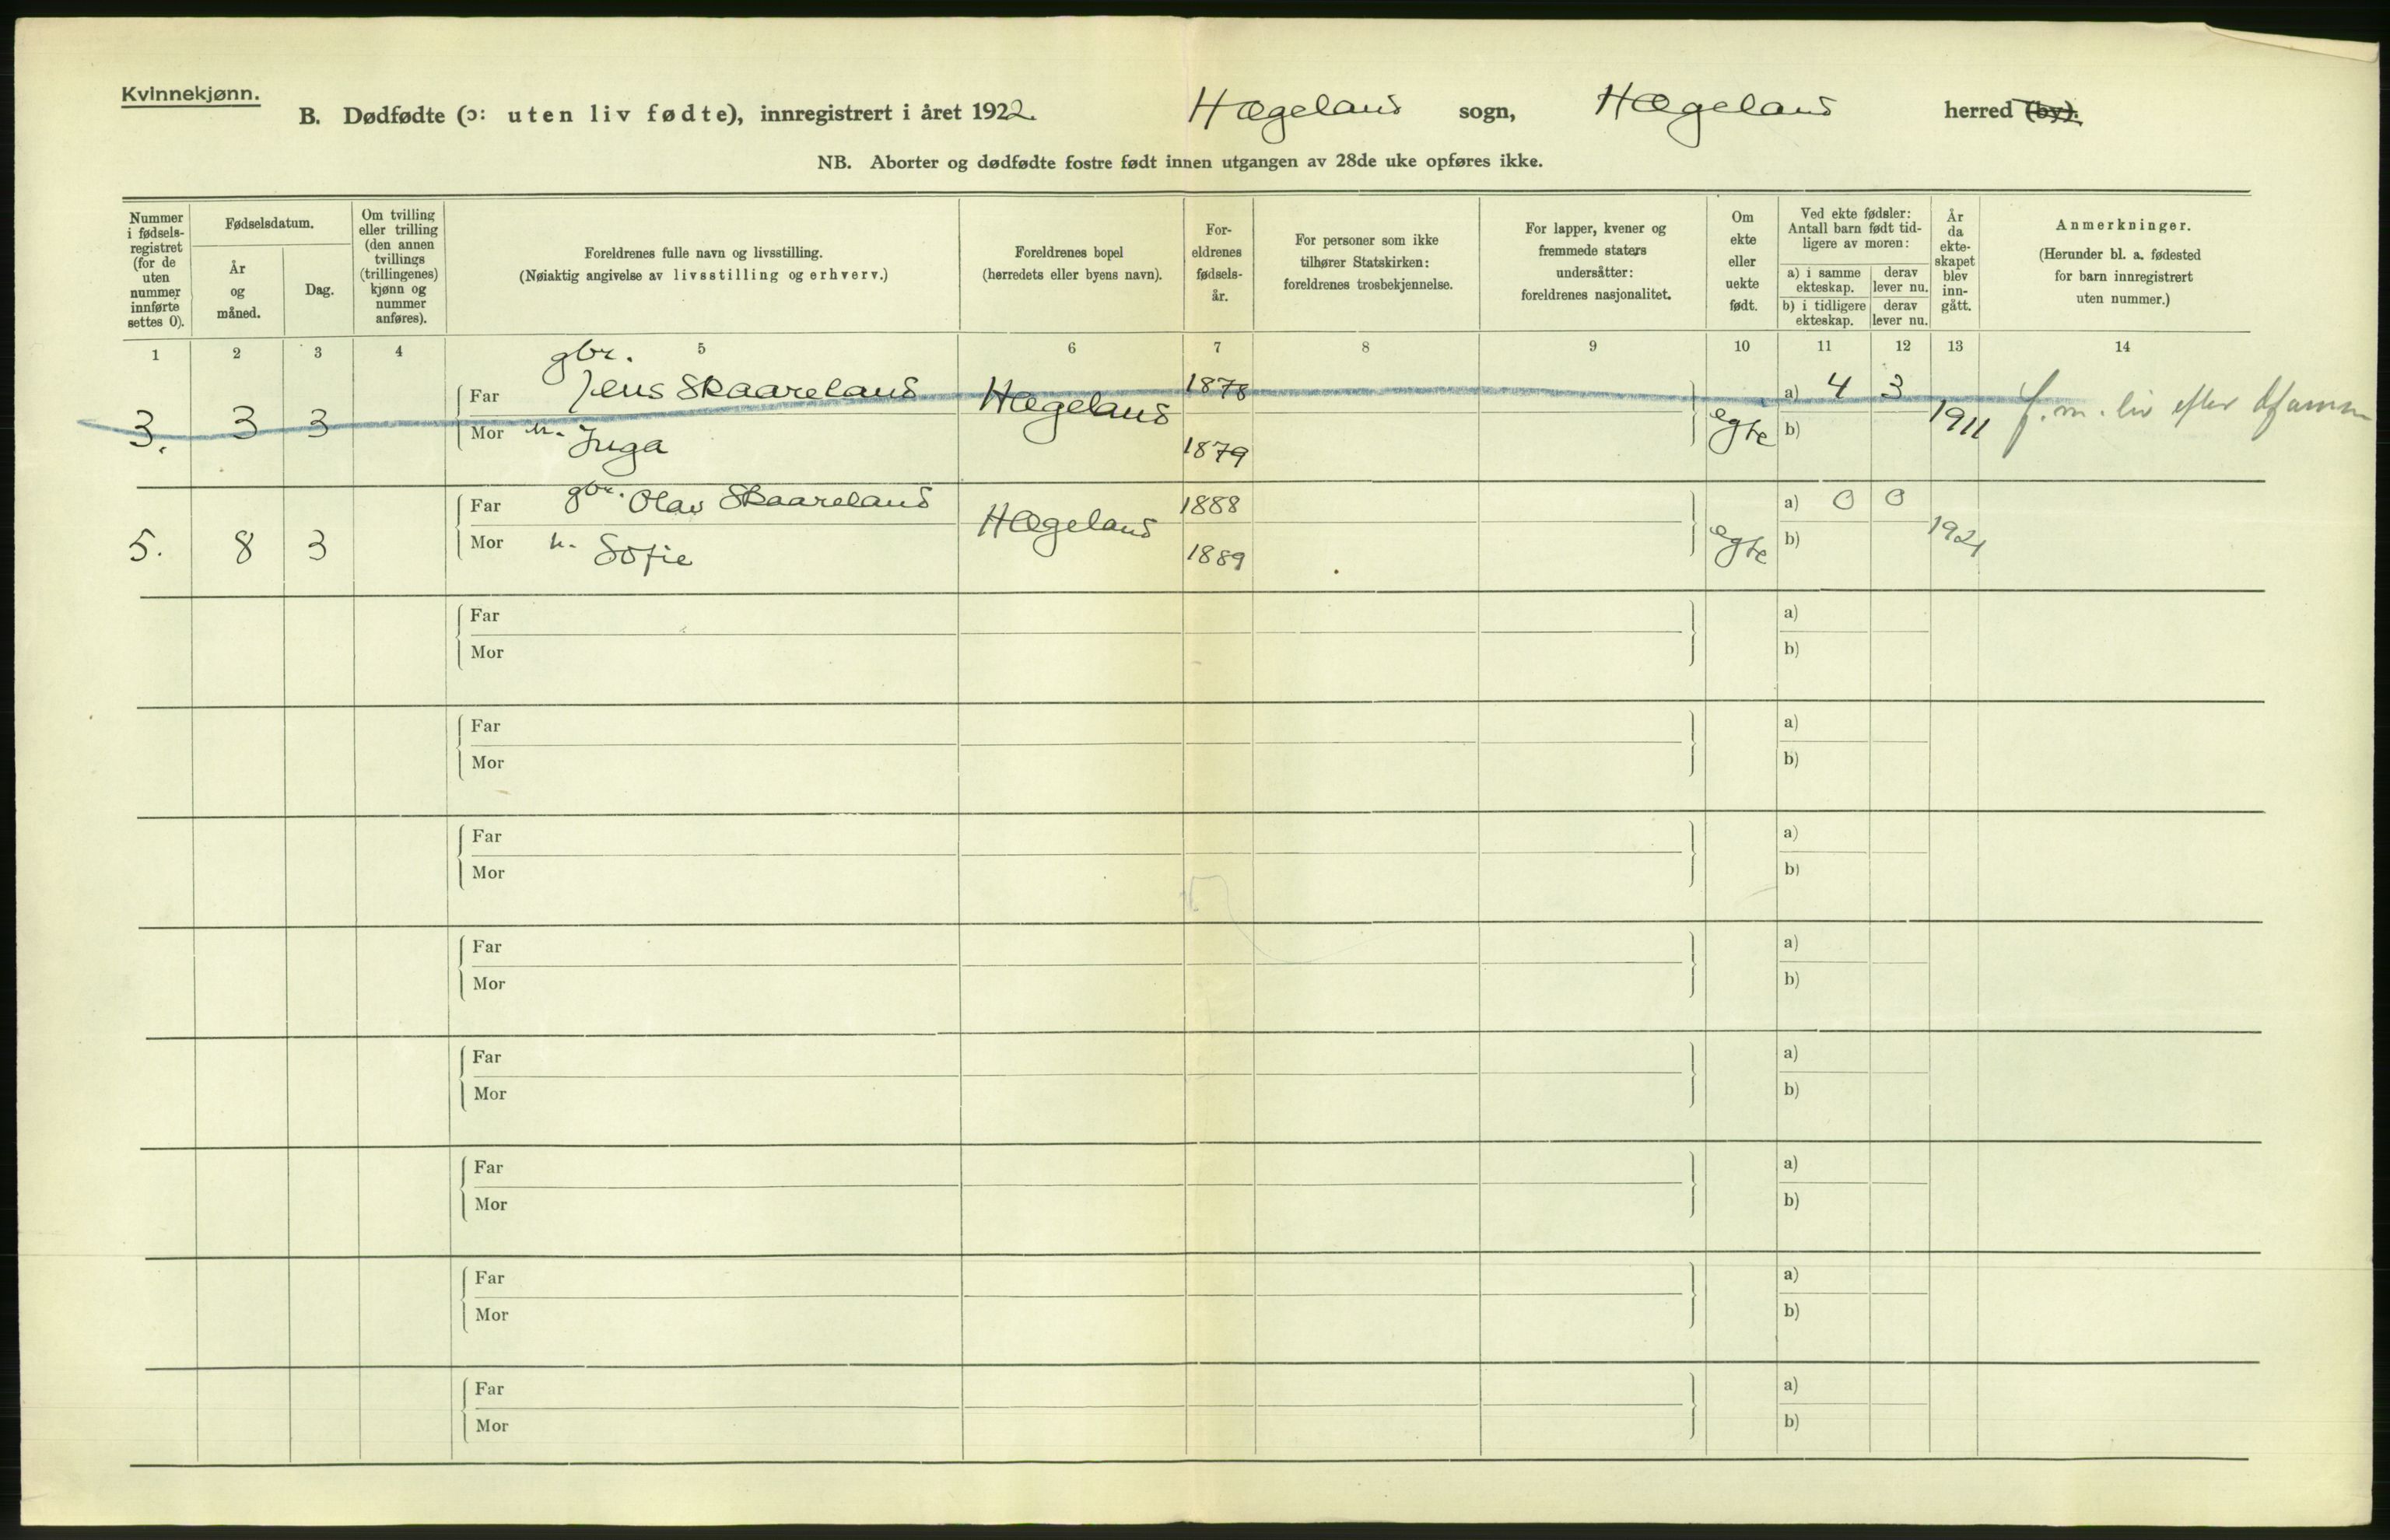 Kvinnekjønn.
B. Dødfødte (ɔ: uten liv fødte), innregistrert i året 1922. Hægeland sogn, Hægeland herred (by).
NB. Aborter og dødfødte fostre født innen utgangen av 28de uke opføres ikke.
Nummer i fødsels-registret (for de uten nummer innførte settes 0).
Fødselsdatum.
År og måned.
Dag.
Om tvilling eller trilling (den annen tvillings (trillingenes) kjønn og nummer anføres).
Foreldrenes fulle navn og livsstilling.
(Nøiaktig angivelse av livsstilling og erhverv.)
Foreldrenes bopel
(herredets eller byens navn).
For-eldrenes fødsels-år.
For personer som ikke tilhører Statskirken: foreldrenes trosbekjennelse.
For lapper, kvener og fremmede staters undersåtter: foreldrenes nasjonalitet.
Om ekte eller uekte født.
Ved ekte fødsler: Antall barn født tid-ligere av moren:
a) i samme ekteskap.
derav lever nu.
b) i tidligere ekteskap.
derav lever nu.
År da ekte-skapet blev inn-gått.
Anmerkninger.
(Herunder bl. a. fødested for barn innregistrert uten nummer.)
1 2 3 4 5 6 7 8 9 10 11 12 13 14
gbr.
Far Jens Skaareland Hægeland 1878 a) 4 3
3. 3 3 Mor h. Inga 1879 egte b) 1911 f. m. liv efter
Far gbr. Olav Skaareland Hægeland 1888 a) 0 0
5. 8 3 Mor h. Sofie 1889 egte b) 1921
Far a)
Mor b)
Far a)
Mor b)
Far a)
Mor b)
Far a)
Mor b)
Far a)
Mor b)
Far a)
Mor b)
Far a)
Mor b)
Far a)
Mor b)